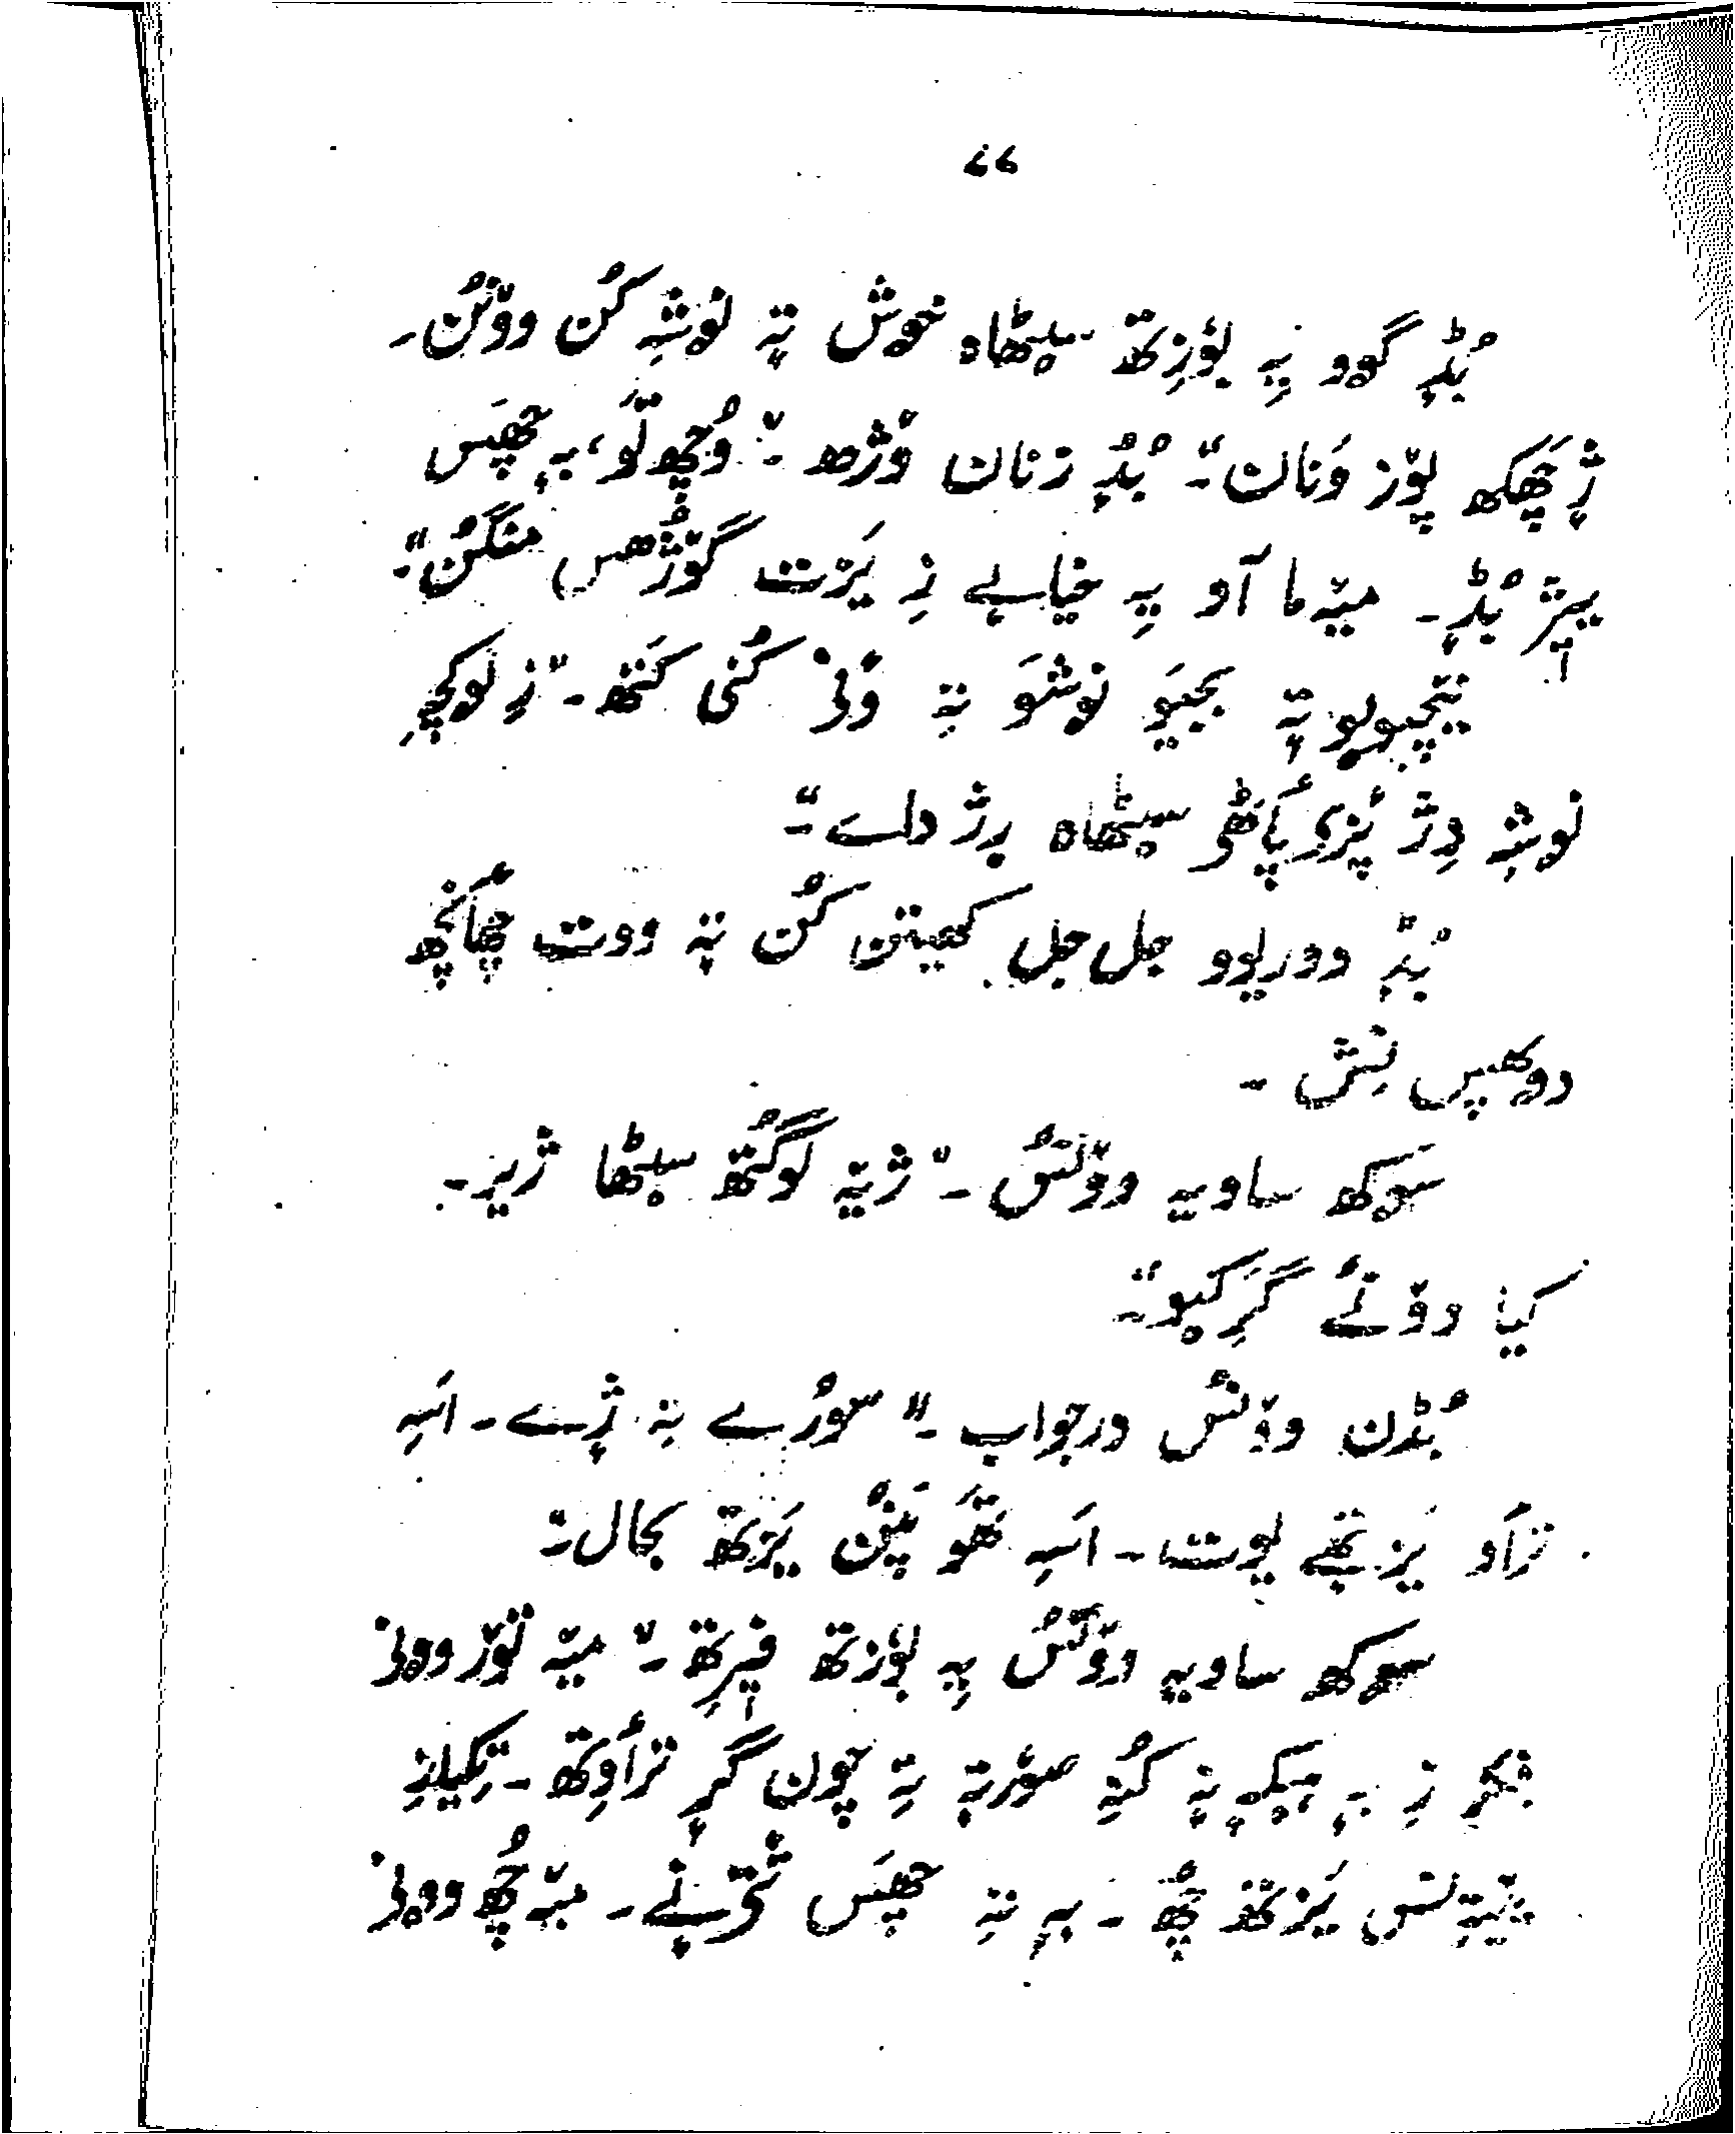 ۷۷
بُڈٕ گوو یہِ بوٗزِتھ سیٹھاہ خوش تہٕ نوشہِ کُن ووٚنُن۔
ژٕ چھَکھ پوٚز وَنان"۔ بُڈٕ زنان وٕژھ ۔" وُچھ لَو، بہٕ چھَس
بُڈٕ۔ میٚہ ما آو یہِ خیالے زِ یَزت گوٚژھس منگُن"۔
نیٚچیوٕو تہٕ بییَو نوشَو تہِ وٕنۍ کُنی کَتھ۔ "زِ لوکچہِ
نوشہِ دِژ پٔزۍ پٲٹھۍ سیٹھاہ رٕژ داے"۔
بُڈٕ دورایوو جل جل کھیتن کُن تہٕ ووت چھانچھ
دوکھس نِش ۔
سوکھ ساویہ ووٚنُس ۔" ژیٚہ لوگُتھ سیٹھا ژیر۔
کیا ووٚنُے گَرِکیو"۔
بُڈن ووٚنُس درجواب ۔" سورُے تہِ ژٕے۔ اسہِ
تراو یَزتھٕے یوت۔ اسہِ تھَو پنُن یَزتھ بحال"۔
سوکھ ساویہ ووٚنُس یہِ بوٗزتھ فیٖرِتھ ۔" میٚہ توٚر وونۍ
فکرِ زِ بہٕ ہیٚکہٕ نہٕ کُنہِ صورتہٕ تہِ چون گَرٕ ترٲوِتھ ۔ تِکیازِ
یَزتھ چھُ ۔ بہٕ تہِ چھَس تٔتی۔ میٚہ چھُ وونۍ